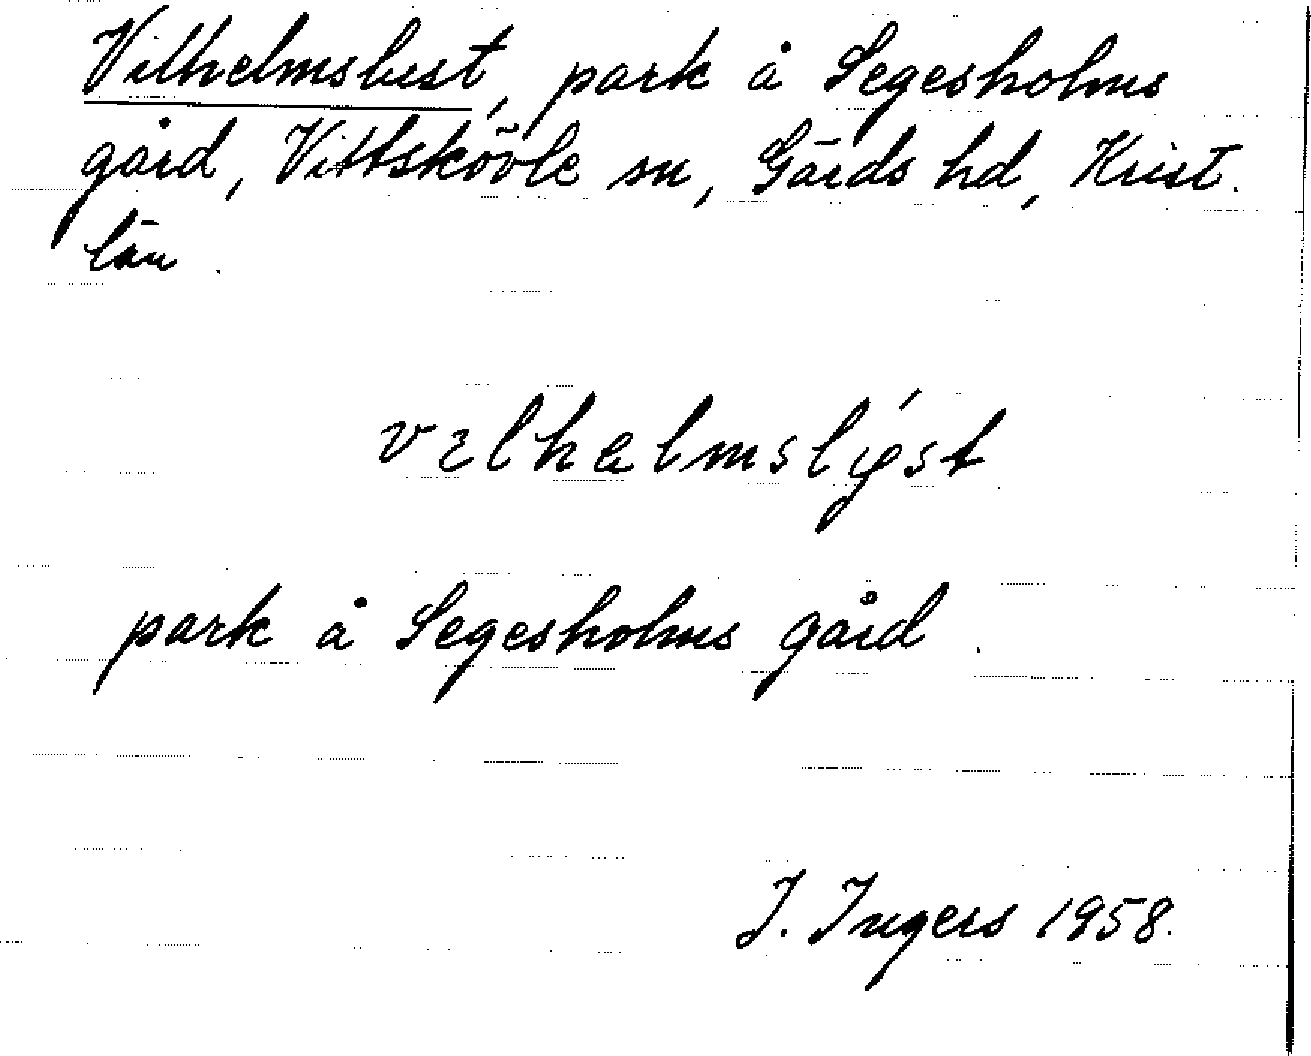 Vilhelmslust, park å Segesholms
gård, Vittskövle sn, Gärds hd, Krist.
län.
vɛlhɛlmslýst
park å Segesholms gård.
I. Ingers 1958.